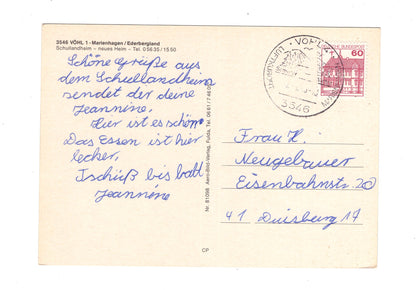 3546 VÖHL 1 - Marienhagen / Ederbergland
Schullandheim – neues Heim – Tel. 0 56 35 / 15 50
Schöne Grüße aus
dem Schullandheim
sendet der deine
Jeannine,
Hier ist es schön
Das Essen ist hier
lecker,
Tschüß bis bald
Jeannine
Nr. 81098 Aero-Bild-Verlag, Fulda, Tel. 06 61 / 7 46
CP
VÖHL
3546
60
Frau H.
Neugebauer
Eisenbahnstr. 20
41 Duisburg 17